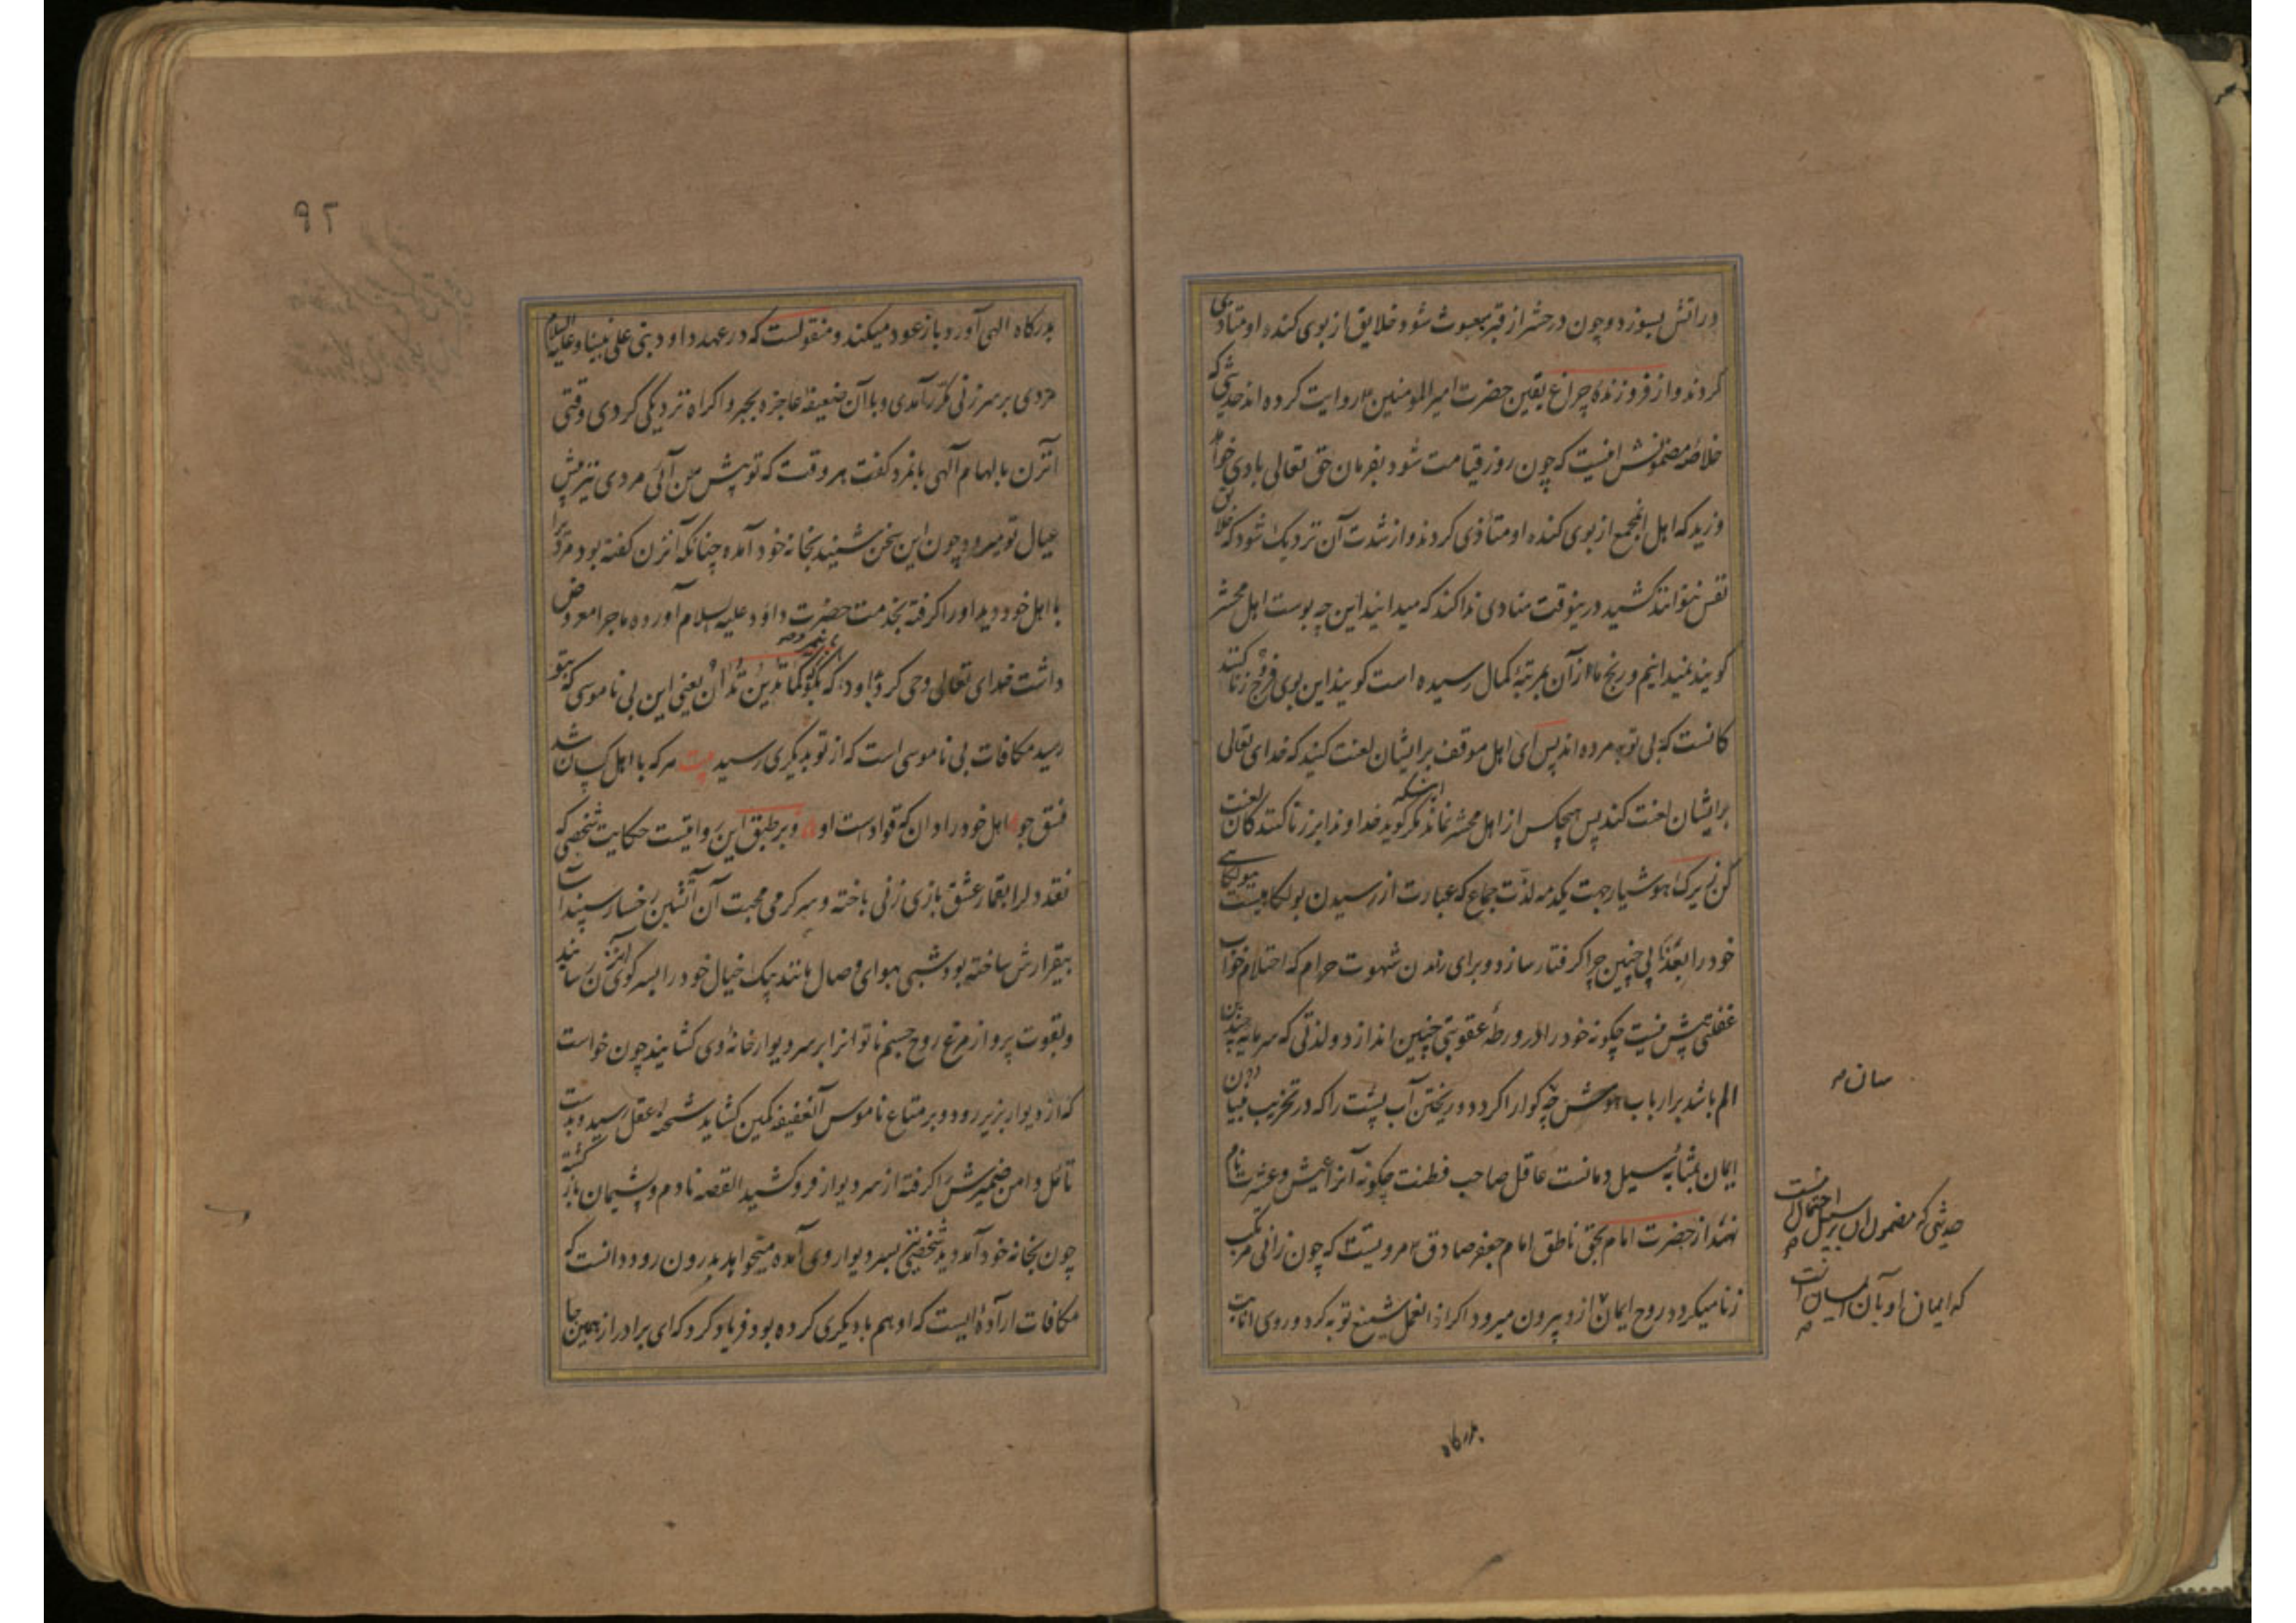 در آتش بسوزد و چون در حشر از قبر مبعوث شود خلایق از بوی کنده او متاذی
کردند و از فروزندهٔ چراغ یقین حضرت امیر المومنین روایت کرده اند حدیثی که
خلاصهٔ مضمونش اینست که چون روز قیامت شود بفرمان حق تعالی بادی
وزید که اهل انمجمع از بوی کنده او متأذی کردند و از شدت آن نزدیک شود که خلایق
نفس نتوانند کشید درینوقت منادی ندا کند که میدانید این چه بوست اهل محشر
کویند نمیدانیم و رنج ما از آن بمرتبهٔ کمال رسیده است کویند این بوی فرج زنا کنند
کانست که بی توبه مرده اند پس ای اهل موقف بر ایشان لعنت کنید که خدای تعالی
بر ایشان لعنت کند پس هیچکس از اهل محشر نماند مکر اینکه کوید خداوندا بر زنا کنندکان لعنت
کن زیرک هوشیار جهت یکدمه لذت جماع که عبارت از رسیدن بولکاهیست
خود را بعذابی چنین چرا کرفتار سازد و برای راندن شهوت حرام که احتلام خواب
غفلتی بیش نیست چکونه خود را در ورطهٔ عقوبتی چنین اندازد و لذتی که سرمایه چندین
الم باشد بر ارباب هوش چه کوارا کردد و ریختن آب پشت را که در تخریب
ایمان بمثابهٔ سیل دمانست عاقل صاحب فطنت چکونه آنرا عیش و عشرت نام
نهد از حضرت امام بحق ناطق امام جعفر صادق مرویست که چون زانی مرتکب
زنا میکردد روح ایمان ازو بیرون میرود اکر از انعمل شنیع توبه کرد و روی انابت
حدیثی که مضمون
که ایمان او بآن
بدرکاه
۹۲
بدرکاه الهی آورد باز عود میکند و منقولست که در عهد داود نبی علی نبینا و علیه السلام
مردی بر سر زنی مکرر آمدی و با آن ضعیفهٔ عاجزه بجبر و اکراه نزدیکی کردی وقتی
آنزن بالهام آلهی بانمرد کفت هر وقت که تو پیش من آئی مردی نیز پیش
عیال تو میرود چون این سخن شنید بخانه خود آمده چنانکه آنزن کفته بود مردیرا
با اهل خود دید او را کرفته بخدمت حضرت داود علیه السلام آورده ماجرا معروض
داشت خدای تعالی وحی کرد بداود که بکو کما تدین تدان یعنی این بی ناموسی که بتو
رسید مکافات بی ناموسی است که از تو بدیکری رسید بیت هر که با اهل کسان شد
فسق جو اهل خود را دان که قوادست او و بر طبق این روایتست حکایت شخصی که
نقد دل را بقمار عشق بازی زنی باخته و سرکرمی محبت آن آتشین رخسار سپند آسا
بیقرارش ساخته بود شبی بهوای وصال مانند پیک خیال خود را بسر کوی آنزن رسانید
و بقوت پرواز مرغ روح جسم ناتوانرا بر سر دیوار خانهٔ وی کشانید چون خواست
که از دیوار بزیر رود و بر متاع ناموس آنعفیفه کمین کشاید شحنه عقل رسید و بدست
تأمل دامن ضمیرش را کرفته از سر دیوار فرو کشید القصه نادم و پشیمان باز کشته
چون بخانه خود آمد دید شخصی نیز بسر دیوار وی آمده میخواهد بدرون رود دانست که
مکافات ارادهٔ ایست که او هم با دیکری کرده بود فریاد کرد که ای برادر از همین جا